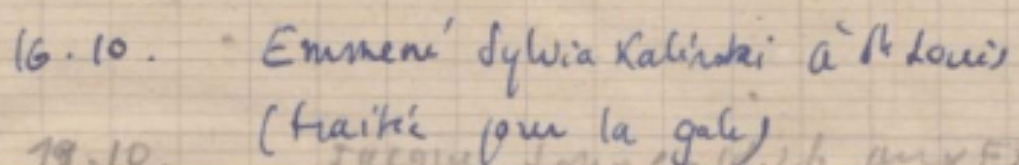 16.10. Emmené Sylvia Kalinski à St Louis
(traitée pour la gale)
19.10.